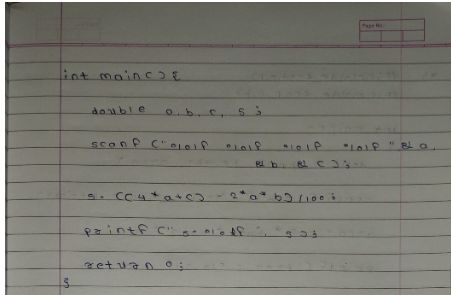 Page No.
int main() {
double a, b, c, s;
scanf ("%lf %lf %lf %lf", &a,
&b, &c);
s = ((4*a+c) - 2*a*b)/100;
printf ("s=%lf", s);
return 0;
}